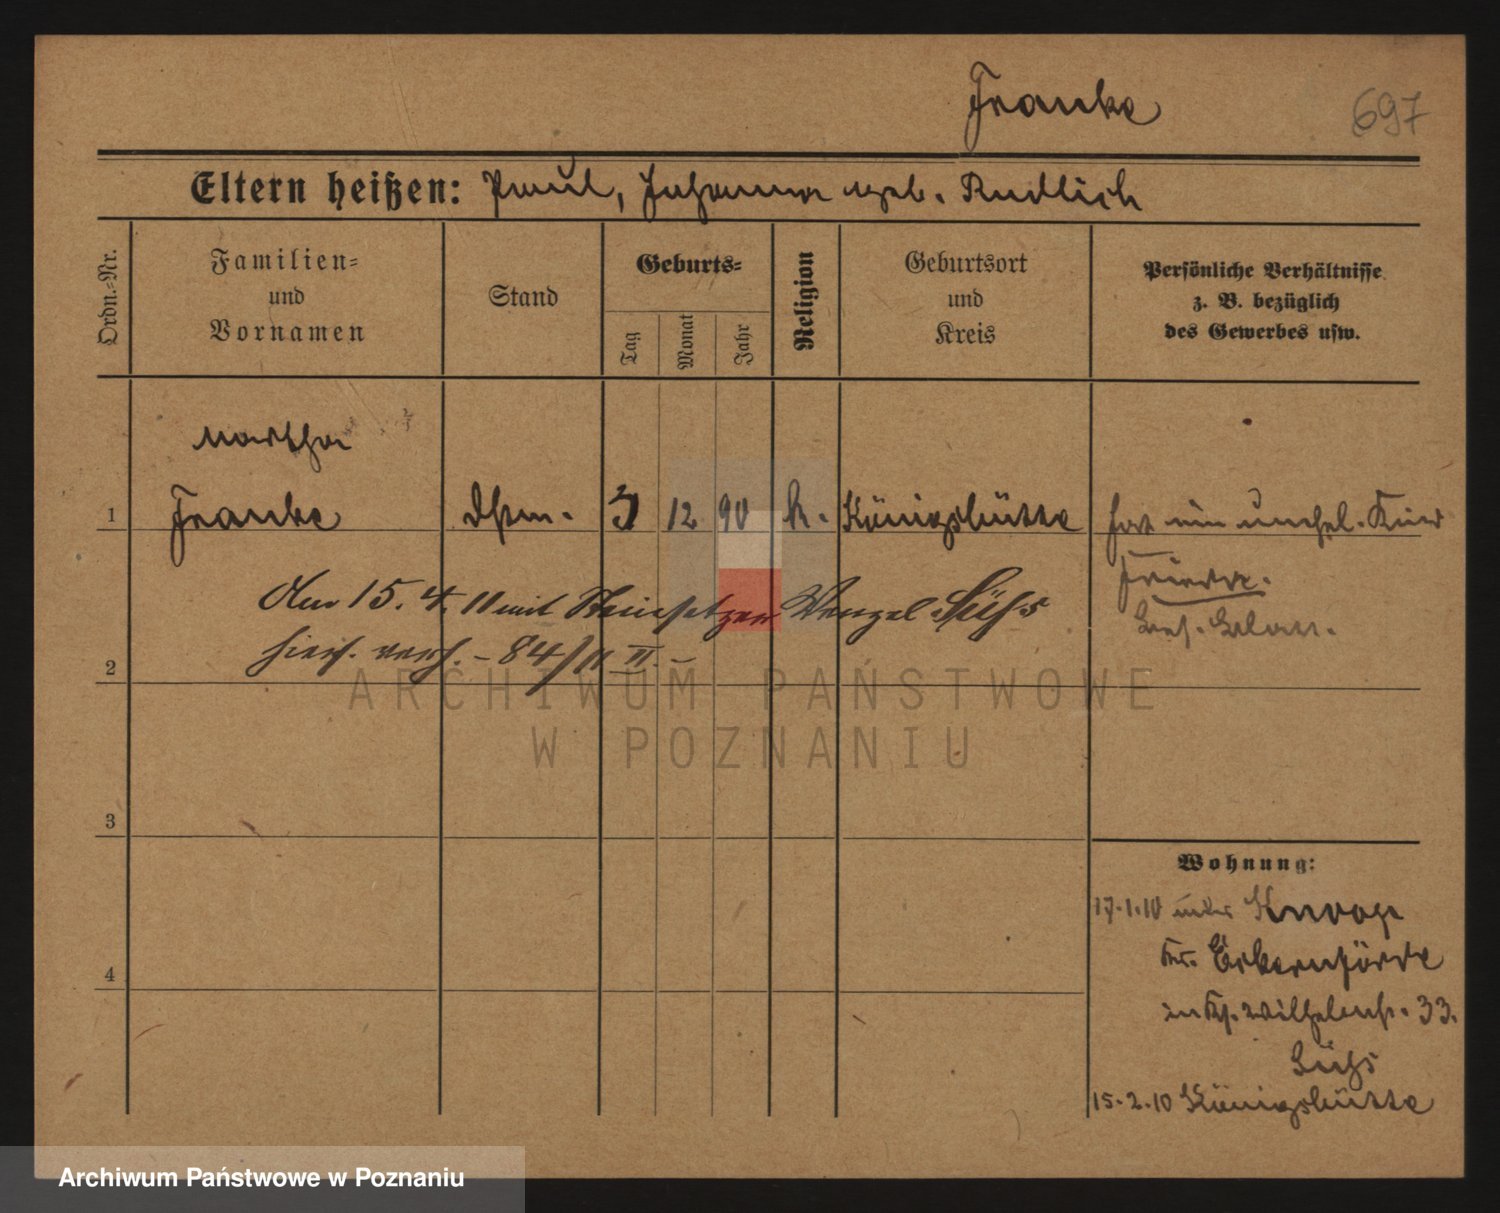 Franke
697
Eltern heißen: Paul, Johanna geb. Rudlich
Ordn.-Nr.
Familien-
und
Vornamen
Stand
Geburts-
Tag
Monat
Jahr
Religion
Geburtsort
und
Kreis
Persönliche Verhältnisse
z. B. bezüglich
des Gewerbes usw.
Martha
1 Franke 12 90 k. Königshütte hat ein unehel. Kind
Frieda.
Am 15. 4. 11 mit Steinsetzer Wenzel Süß
hier. verh. - 84/11 II. -
2
3
4
Wohnung:
17.1.10 Knoop
Eckernförde
33.
15.2.10 Königshütte
ARCHIWUM PAŃSTWOWE
W POZNANIU
Archiwum Państwowe w Poznaniu